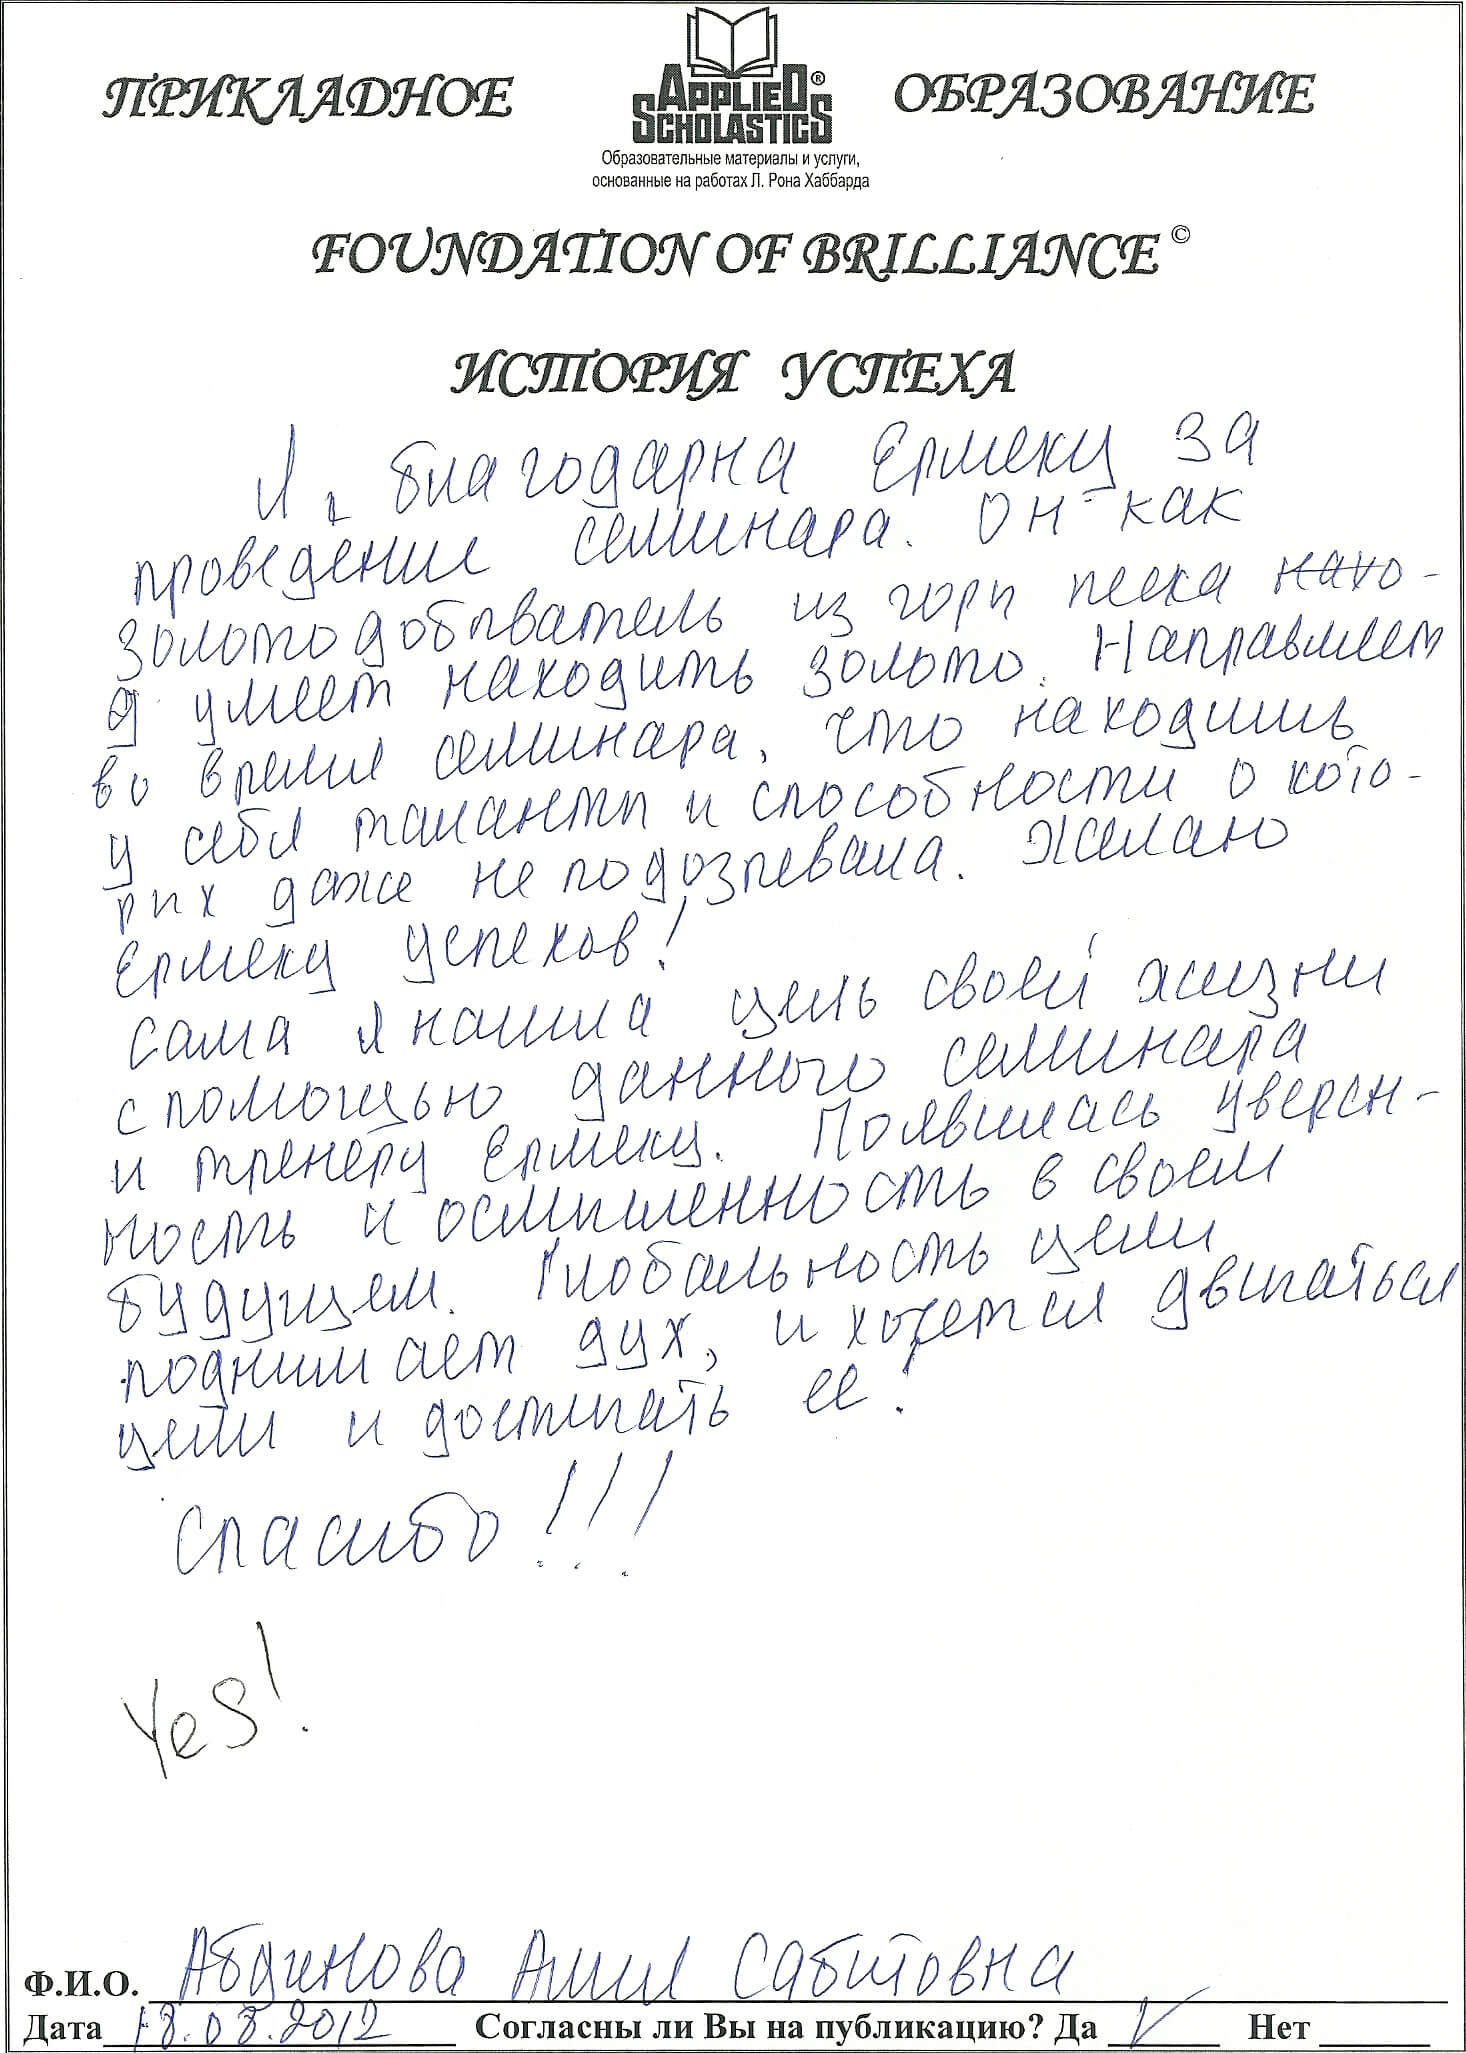 ПРИКЛАДНОЕ APPLIED SCHOLASTICS® ОБРАЗОВАНИЕ
Образовательные материалы и услуги,
основанные на работах Л. Рона Хаббарда
FOUNDATION OF BRILLIANCE ©
ИСТОРИЯ УСПЕХА
Я, благодарна Ермеку за
проведение семинара. Он как
золотодобыватель из горы песка нахо-
д умеет находить золото. Направляет
во время семинара, что находишь
у себя таланты и способности о кото-
рых даже не подозревала. Желаю
Ермеку успехов!
Сама я нашла цель своей жизни
с помощью данного семинара
и тренеру Ермеку. Появилась уверен-
ность и осмысленность в своем
будущем. Глобальность цели
поднимает дух, и хочется двигаться
цели и достигать ее!
Спасибо!!!
Yes!
Ф.И.О. Сабитовна
Дата 18.03.2012 Согласны ли Вы на публикацию? Да V Нет